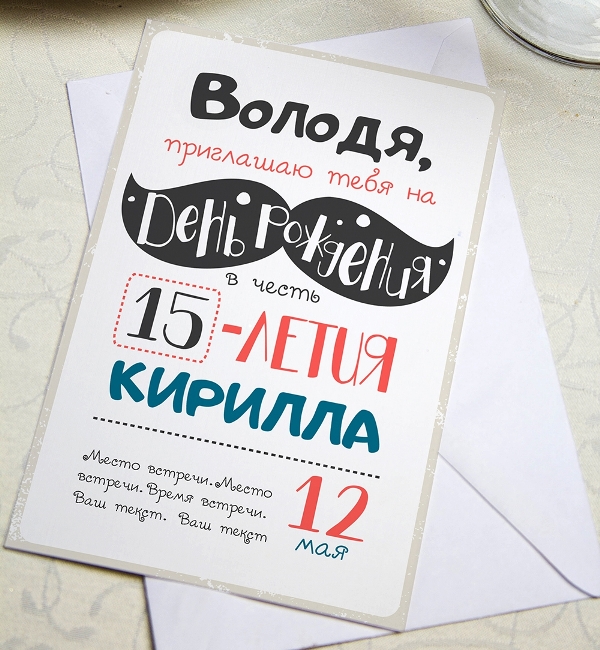 Володя,
приглашаю тебя на
День Рождения
в честь
15-ЛЕТИЯ
КИРИЛЛА
Место встречи. Место
встречи. Время встречи.
Ваш текст. Ваш текст
12
мая